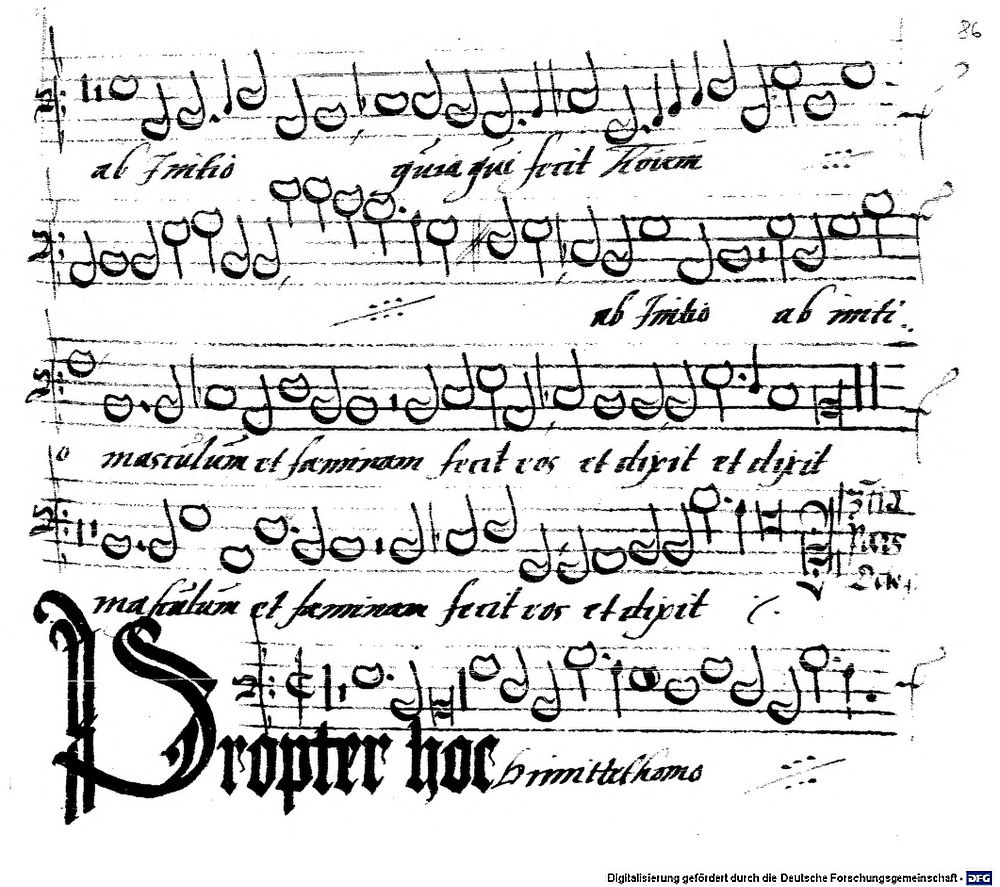 86
ab Initio quia qui fecit
ab Initio ab initi
o masculum et fæminam fecit eos et dixit et dixit
3tia
pars
masculum et fæminam fecit eos et dixit
Propter hoc dimittet homo
Digitalisierung gefördert durch die Deutsche Forschungsgemeinschaft - DFG